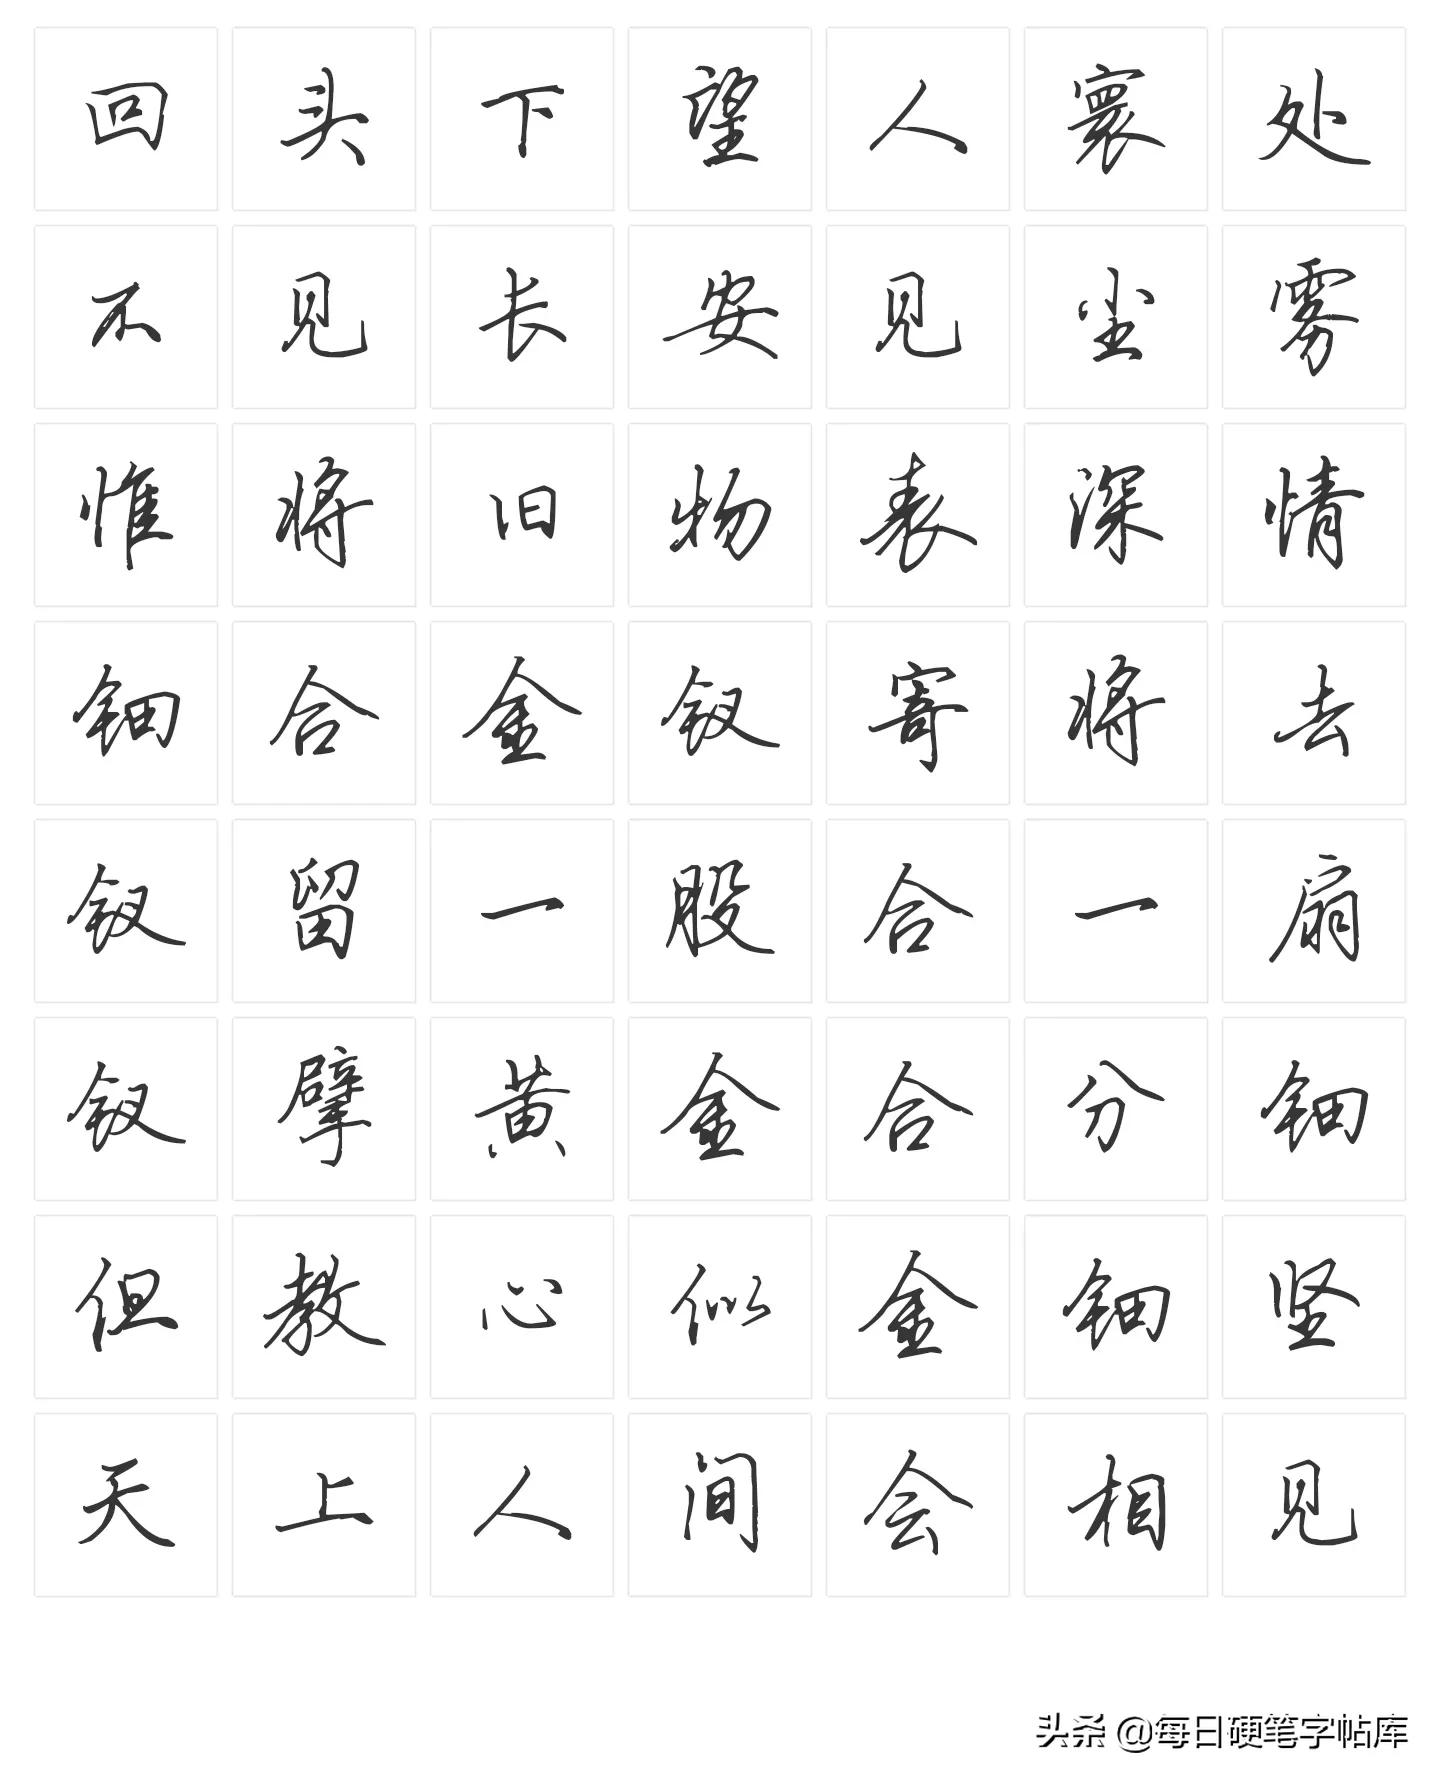 回头下望人寰处
不见长安见尘雾
惟将旧物表深情
钿合金钗寄将去
钗留一股合一扇
钗擘黄金合分钿
但教心似金钿坚
天上人间会相见
头条 @每日硬笔字帖库